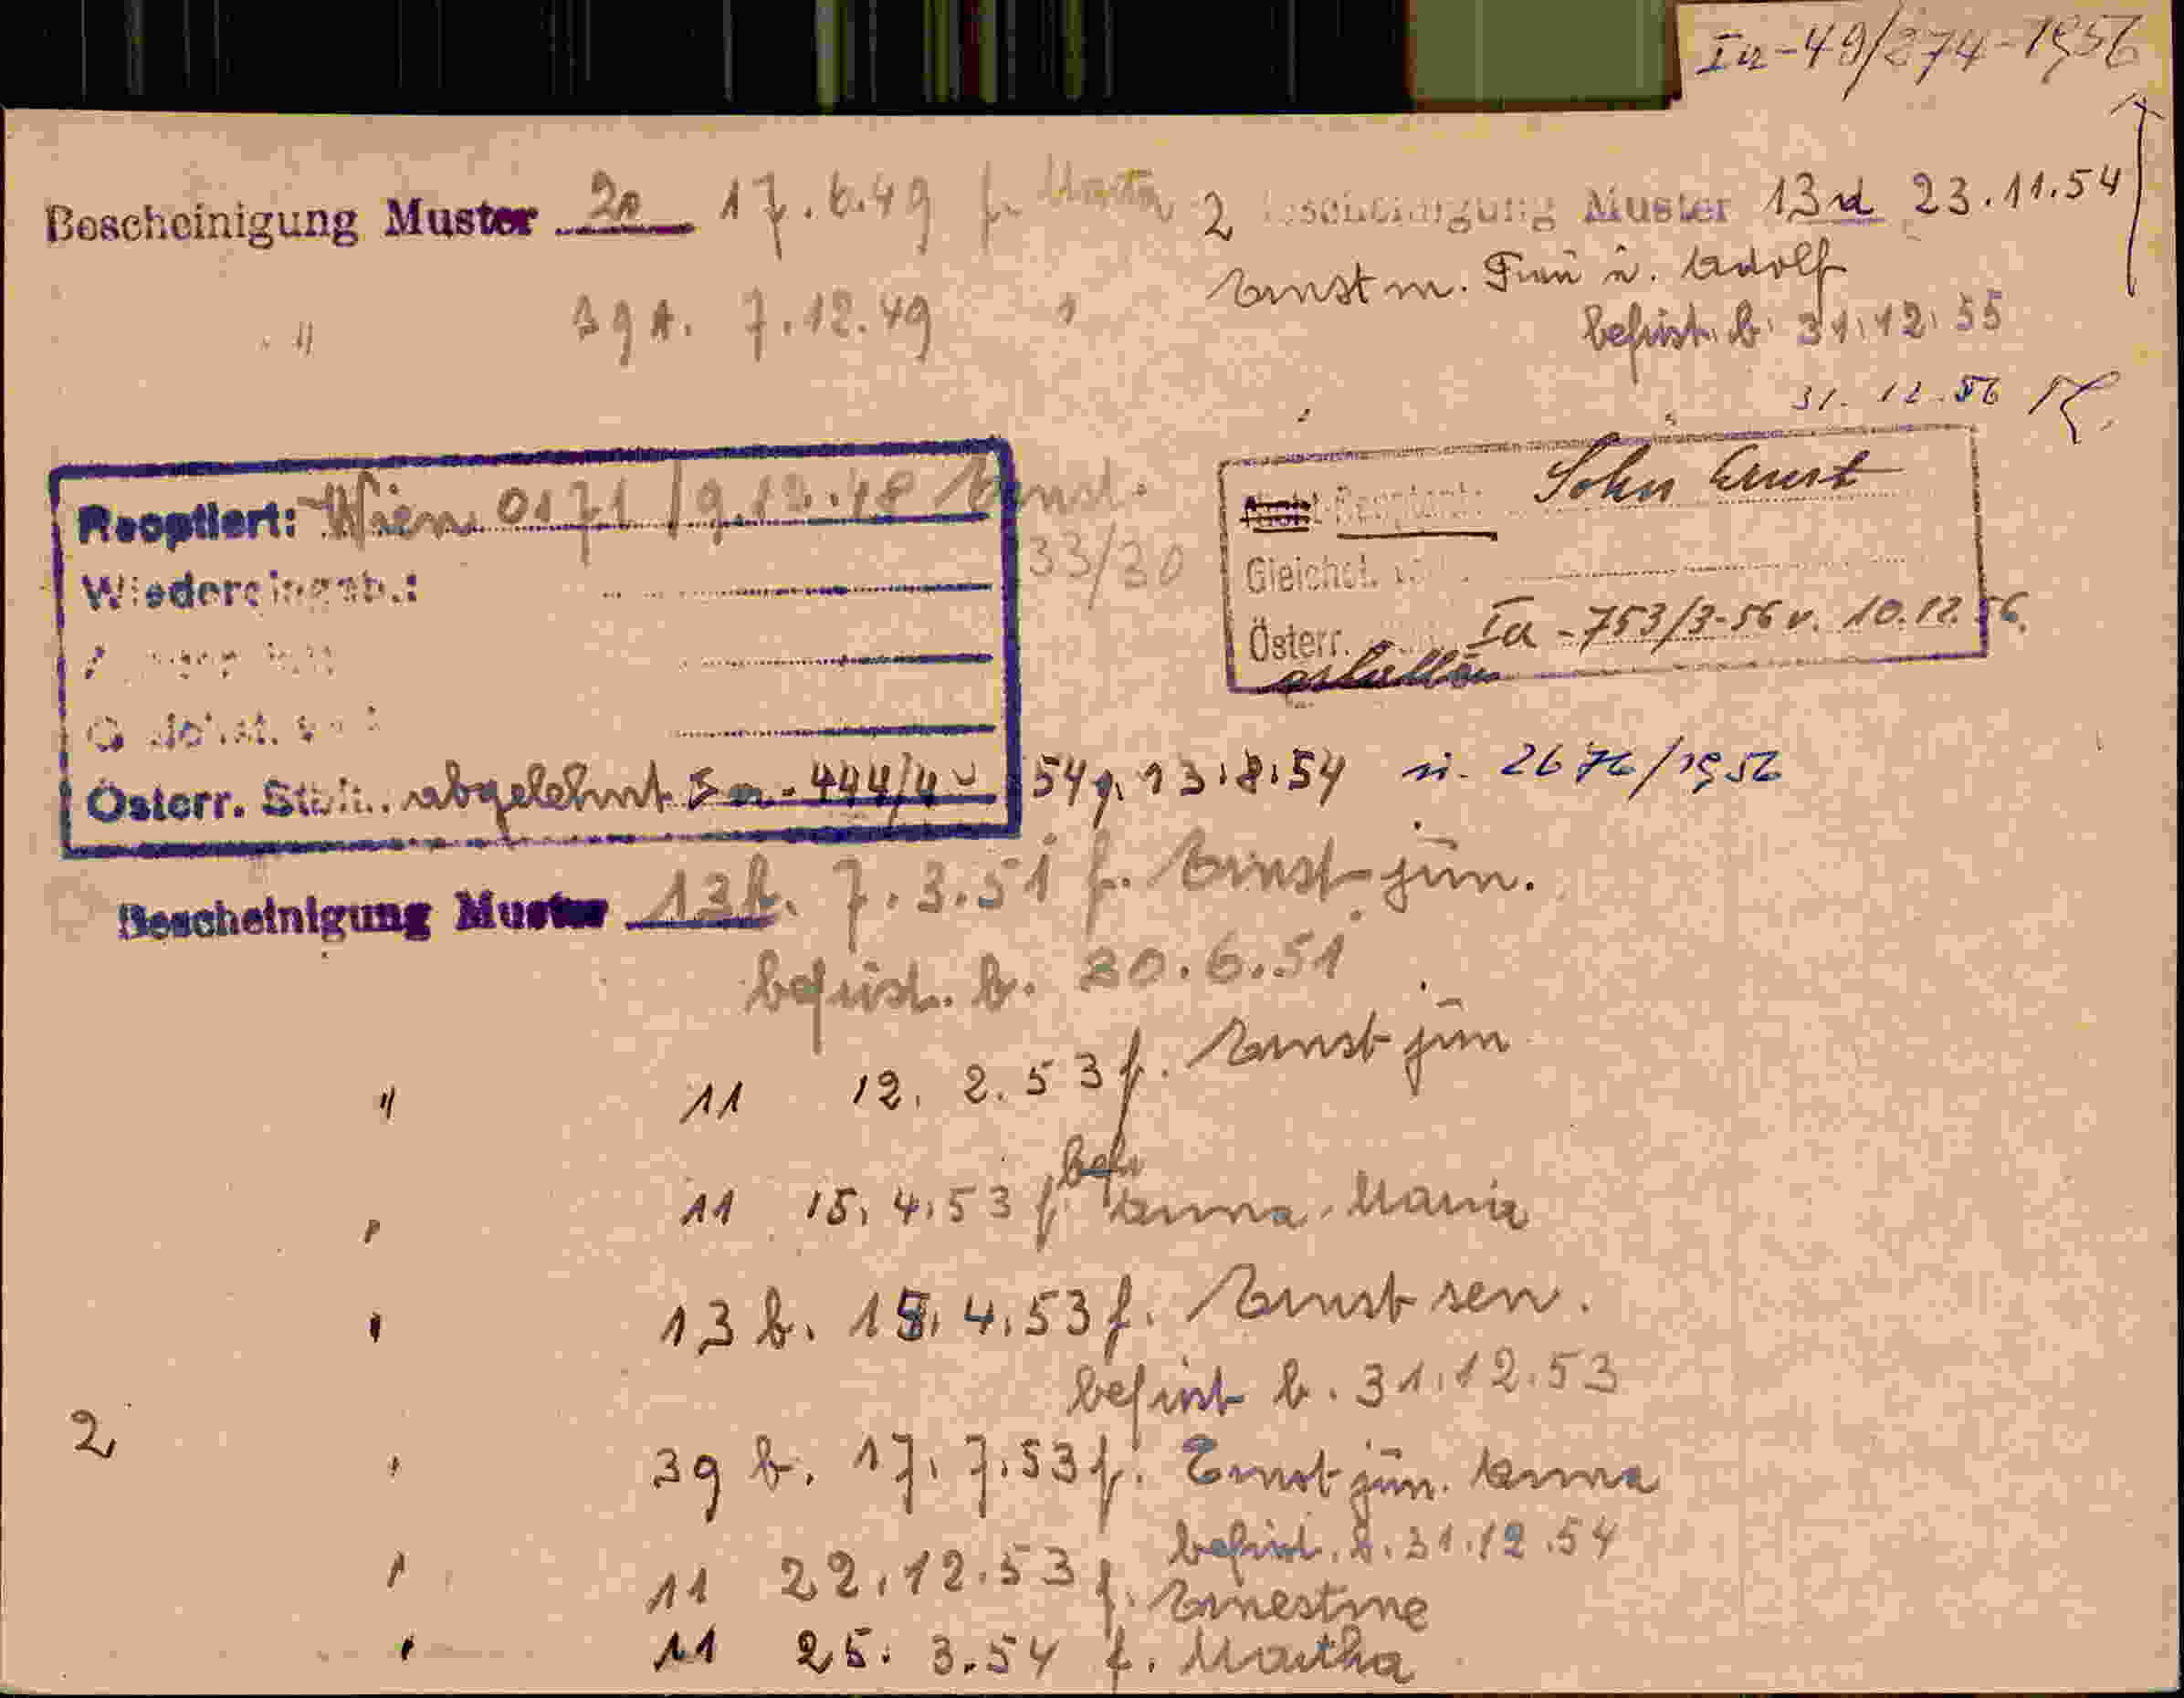 Ia-49/274-1956
Bescheinigung Muster 2a 17.6.49 f. Marta
" 39 A. 7.12.49 "
2 Bescheinigung Muster 13d 23.11.54
Ernst m. Frau u. Adolf
befrist. b. 31.12.55
31.12.56
Reoptiert: Wien 0171 / 9.12.48 Ernst.
33/30
Wiedereingeb.:
Gleichst. von
Österr. Stb. abgelehnt Ia-444/4 v 54 v. 13.8.54 u. 2676/1956
Reoptant: Sohn Ernst
Gleichst. von
Österr. Ia-753/3-56 v. 10.12.56.
erhalten
Bescheinigung Muster 13b. 7.3.51 f. Ernst jun.
befrist. b. 20.6.51
" 11 12.2.53 f. Ernst jun
bef
" 11 15.4.53 f. Anna, Maria
" 13 b. 15.4.53 f. Ernst sen.
befrist b. 31.12.53
2 " 39 b. 17.7.53 f. Ernst jun. Anna
befrist. b. 31.12.54
" 11 22.12.53 f. Ernestine
" 11 25.3.54 f. Martha